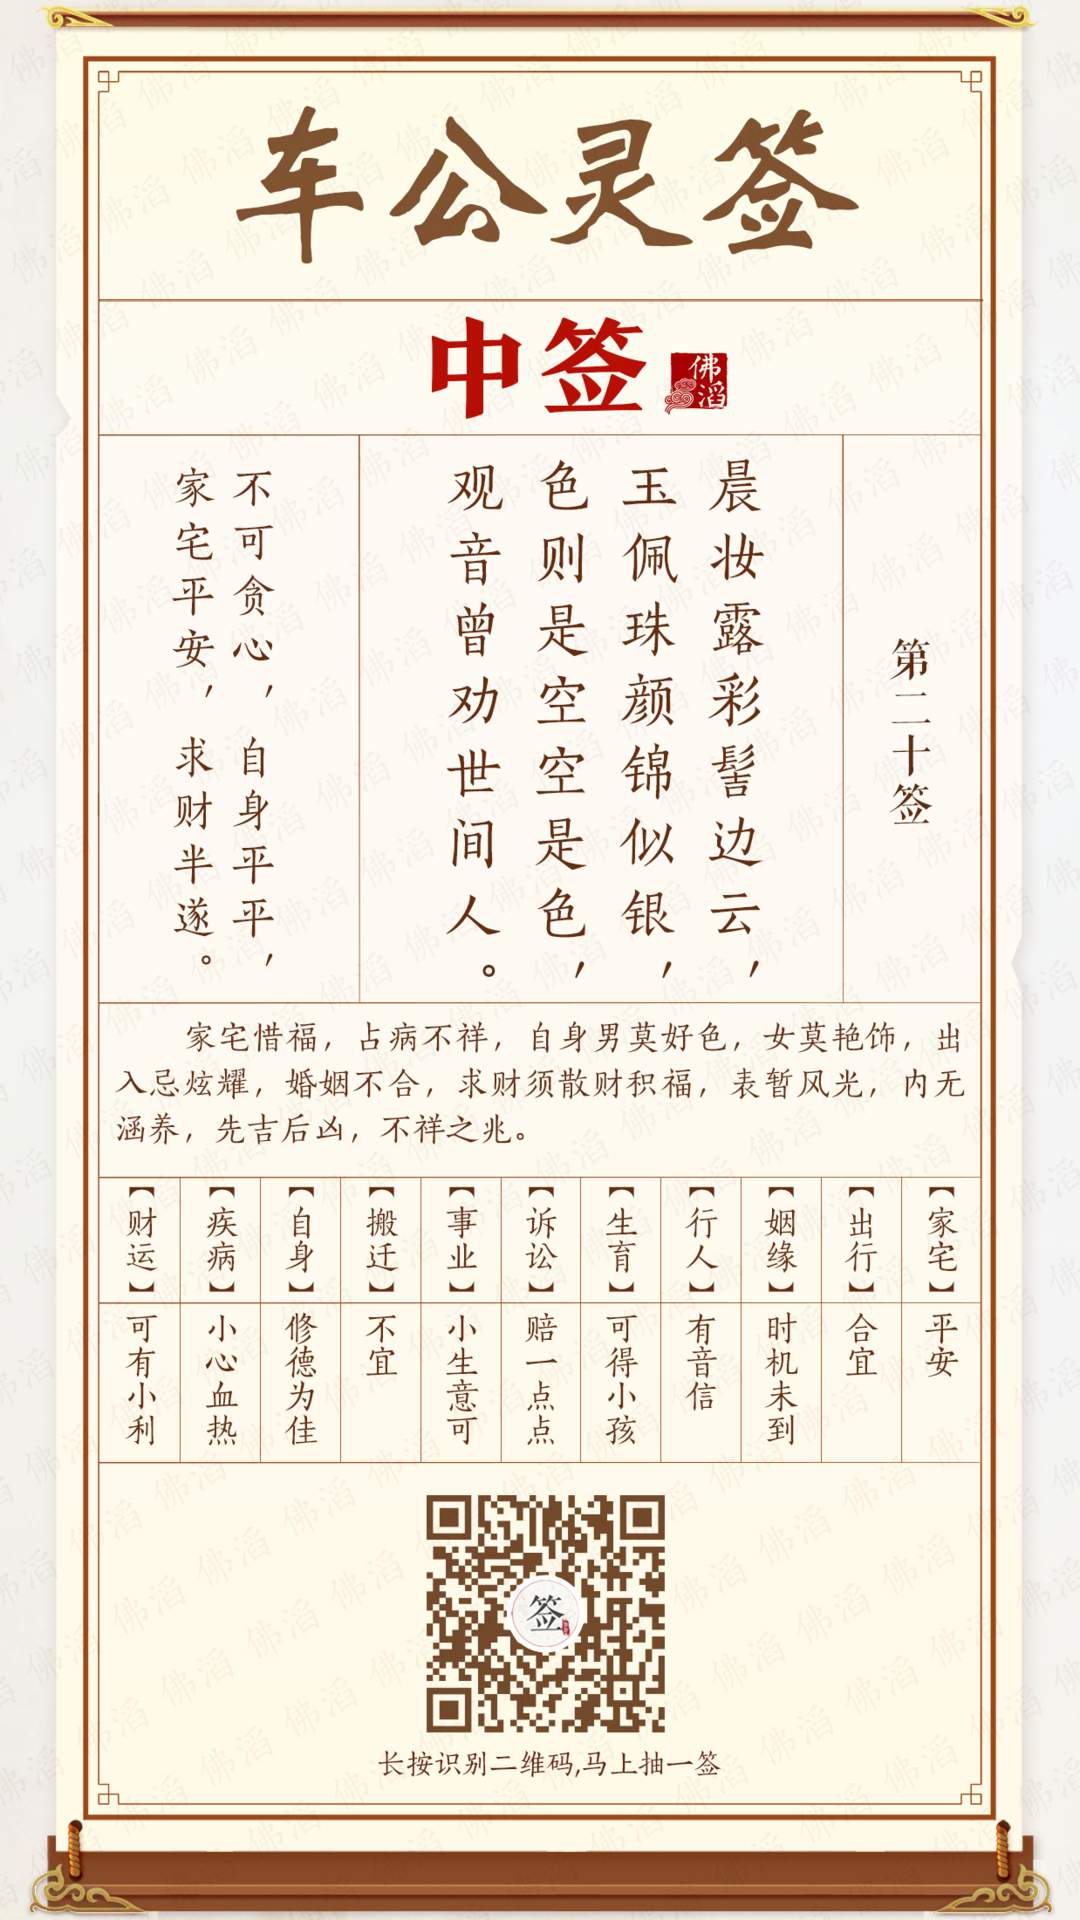 车公灵签
中签
佛滔
第二十签
晨妆露彩髻边云，
玉佩珠颜锦似银，
色则是空空是色，
观音曾劝世间人。
不可贪心，自身平平，
家宅平安，求财半遂。
家宅惜福，占病不祥，自身男莫好色，女莫艳饰，出
入忌炫耀，婚姻不合，求财须散财积福，表暂风光，内无
涵养，先吉后凶，不祥之兆。
【家宅】
平安
【出行】
合宜
【姻缘】
时机未到
【行人】
有音信
【生育】
可得小孩
【诉讼】
赔一点点
【事业】
小生意可
【搬迁】
不宜
【自身】
修德为佳
【疾病】
小心血热
【财运】
可有小利
签
长按识别二维码,马上抽一签